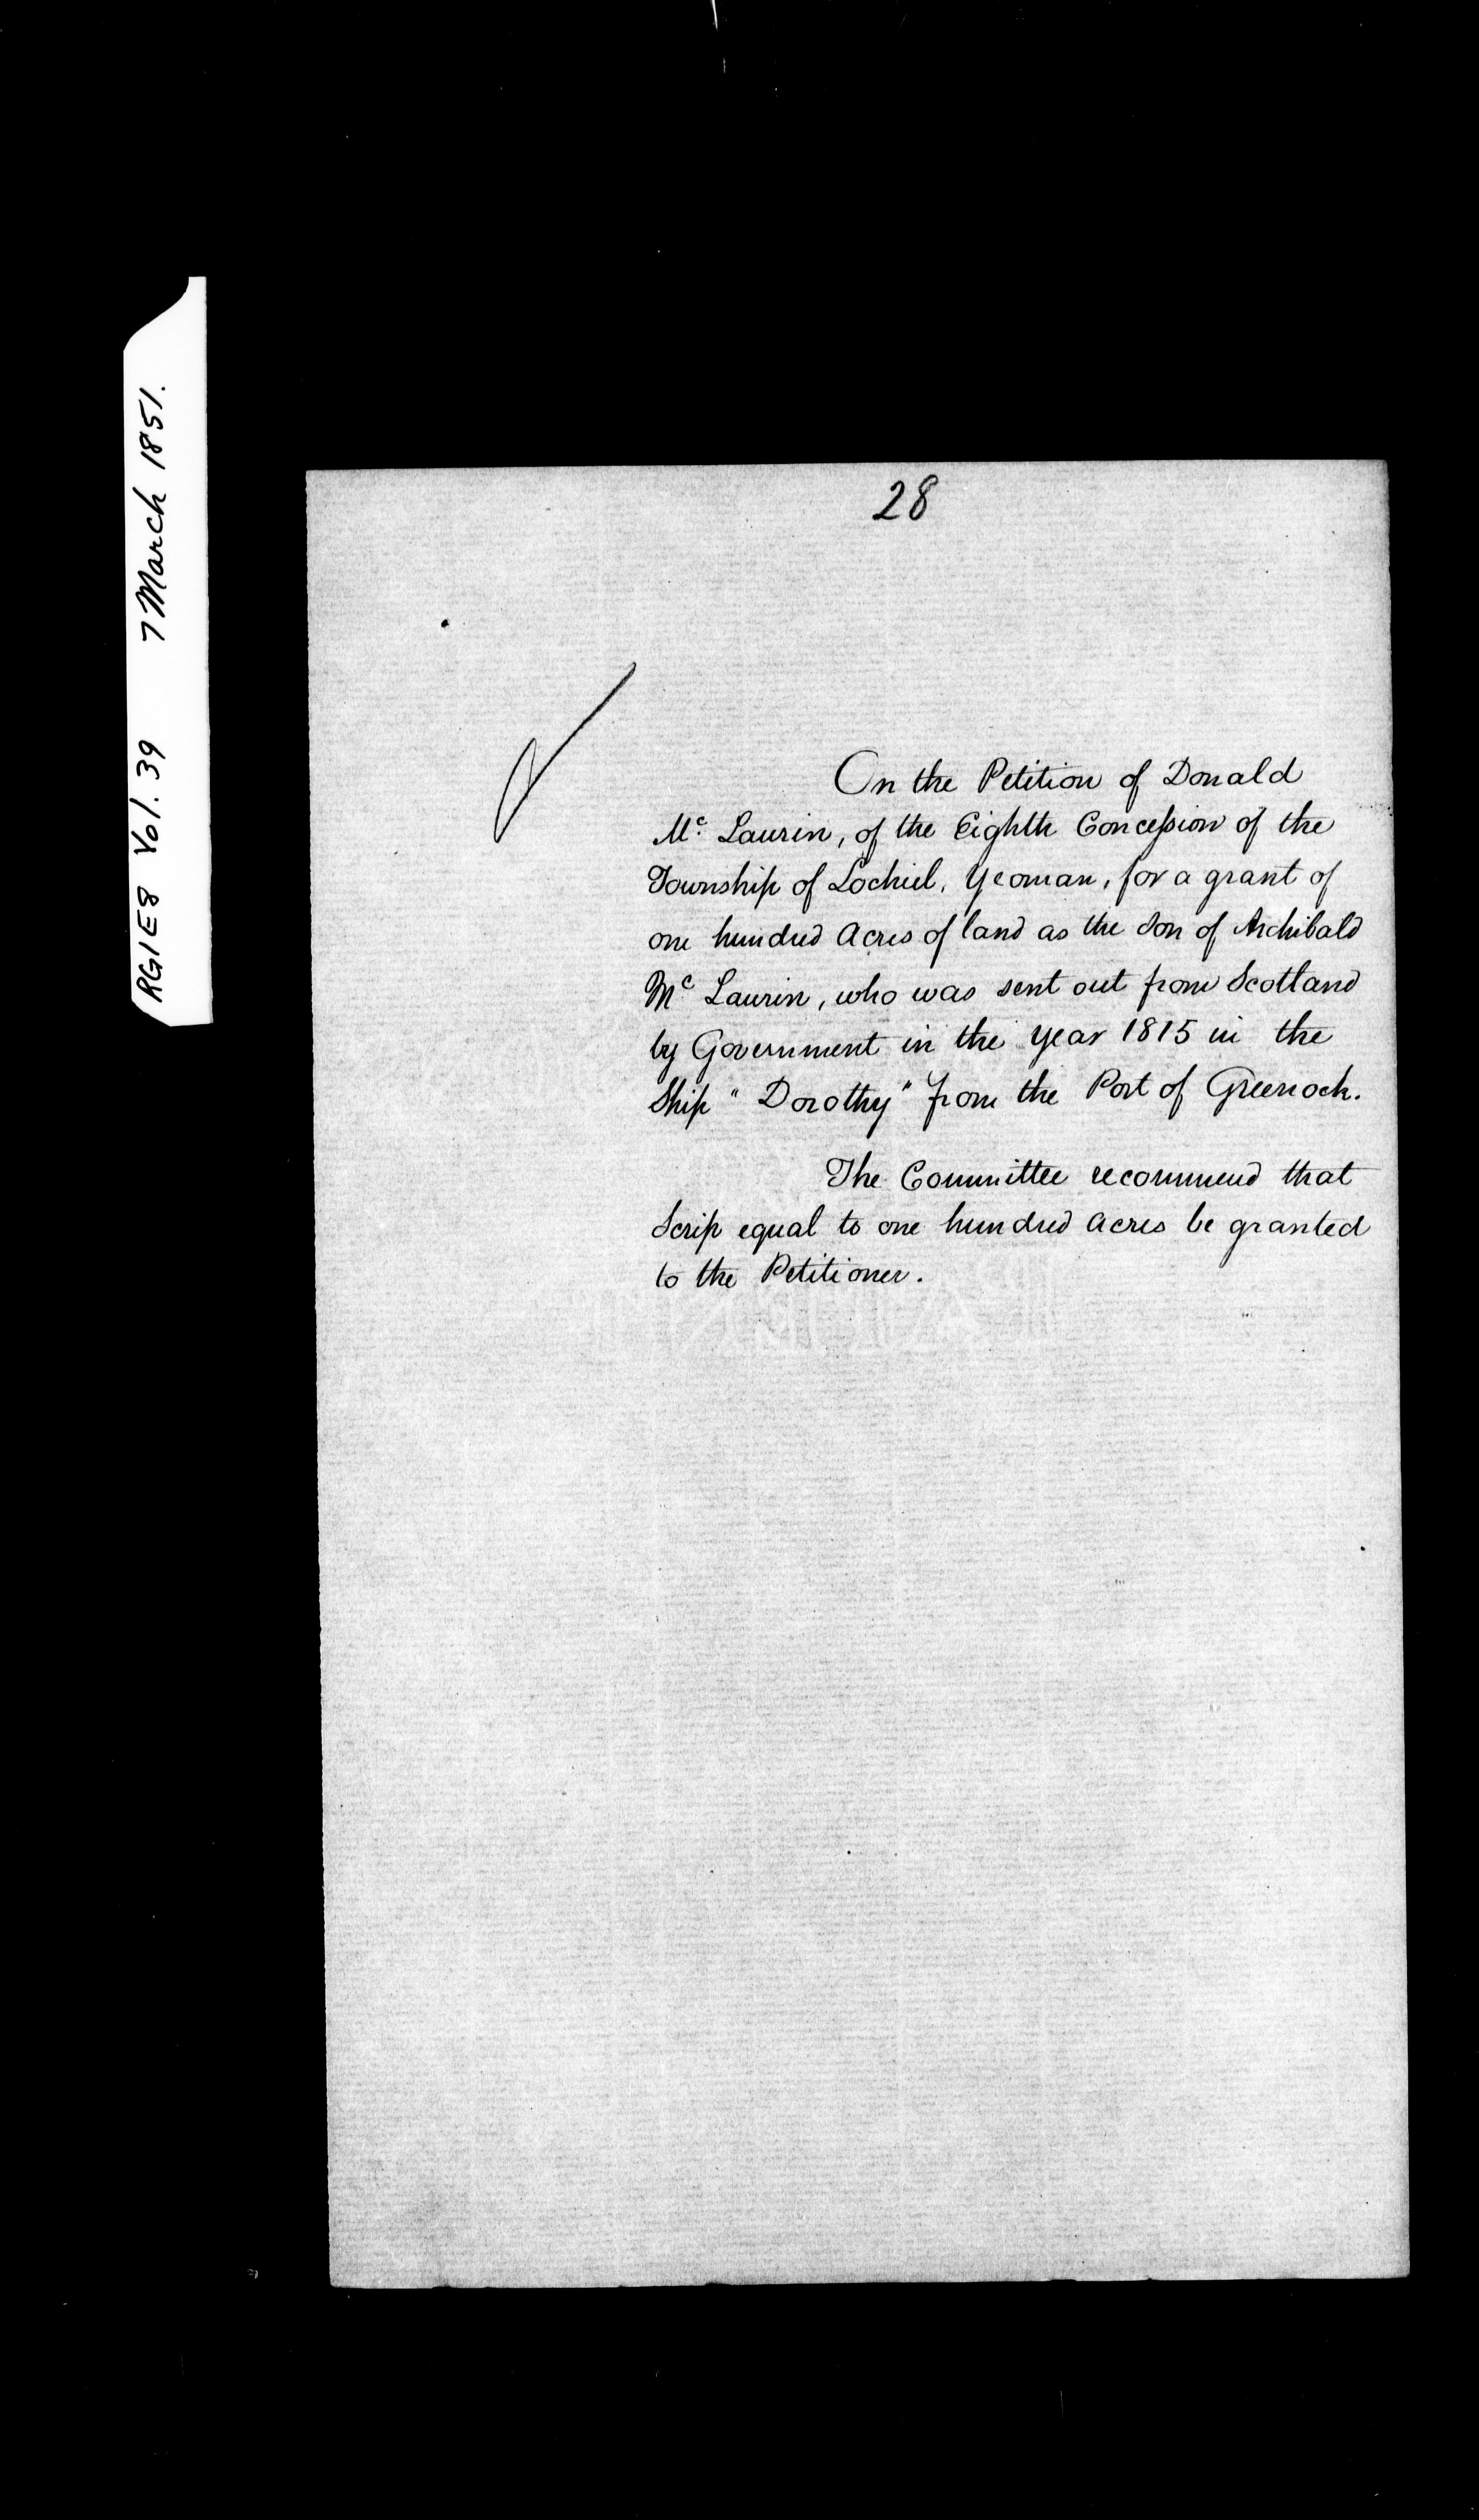 RG1E8 Vol. 39 7 March 1851.
28
On the Petition of Donald
Mc. Laurin, of the Eighth Concession of the
Township of Lochiel, Yeoman, for a grant of
one hundred Acres of land as the Son of Archibald
Mc. Laurin, who was sent out from Scotland
by Government in the year 1815 in the
Ship "Dorothy" from the Port of Greenock.
The Committee recommend that
Scrip equal to one hundred Acres be granted
to the Petitioner.